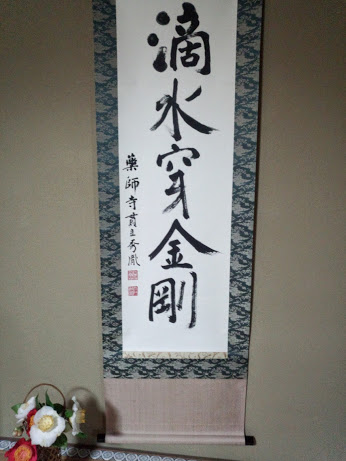 滴水穿金剛
藥師寺貫主秀胤